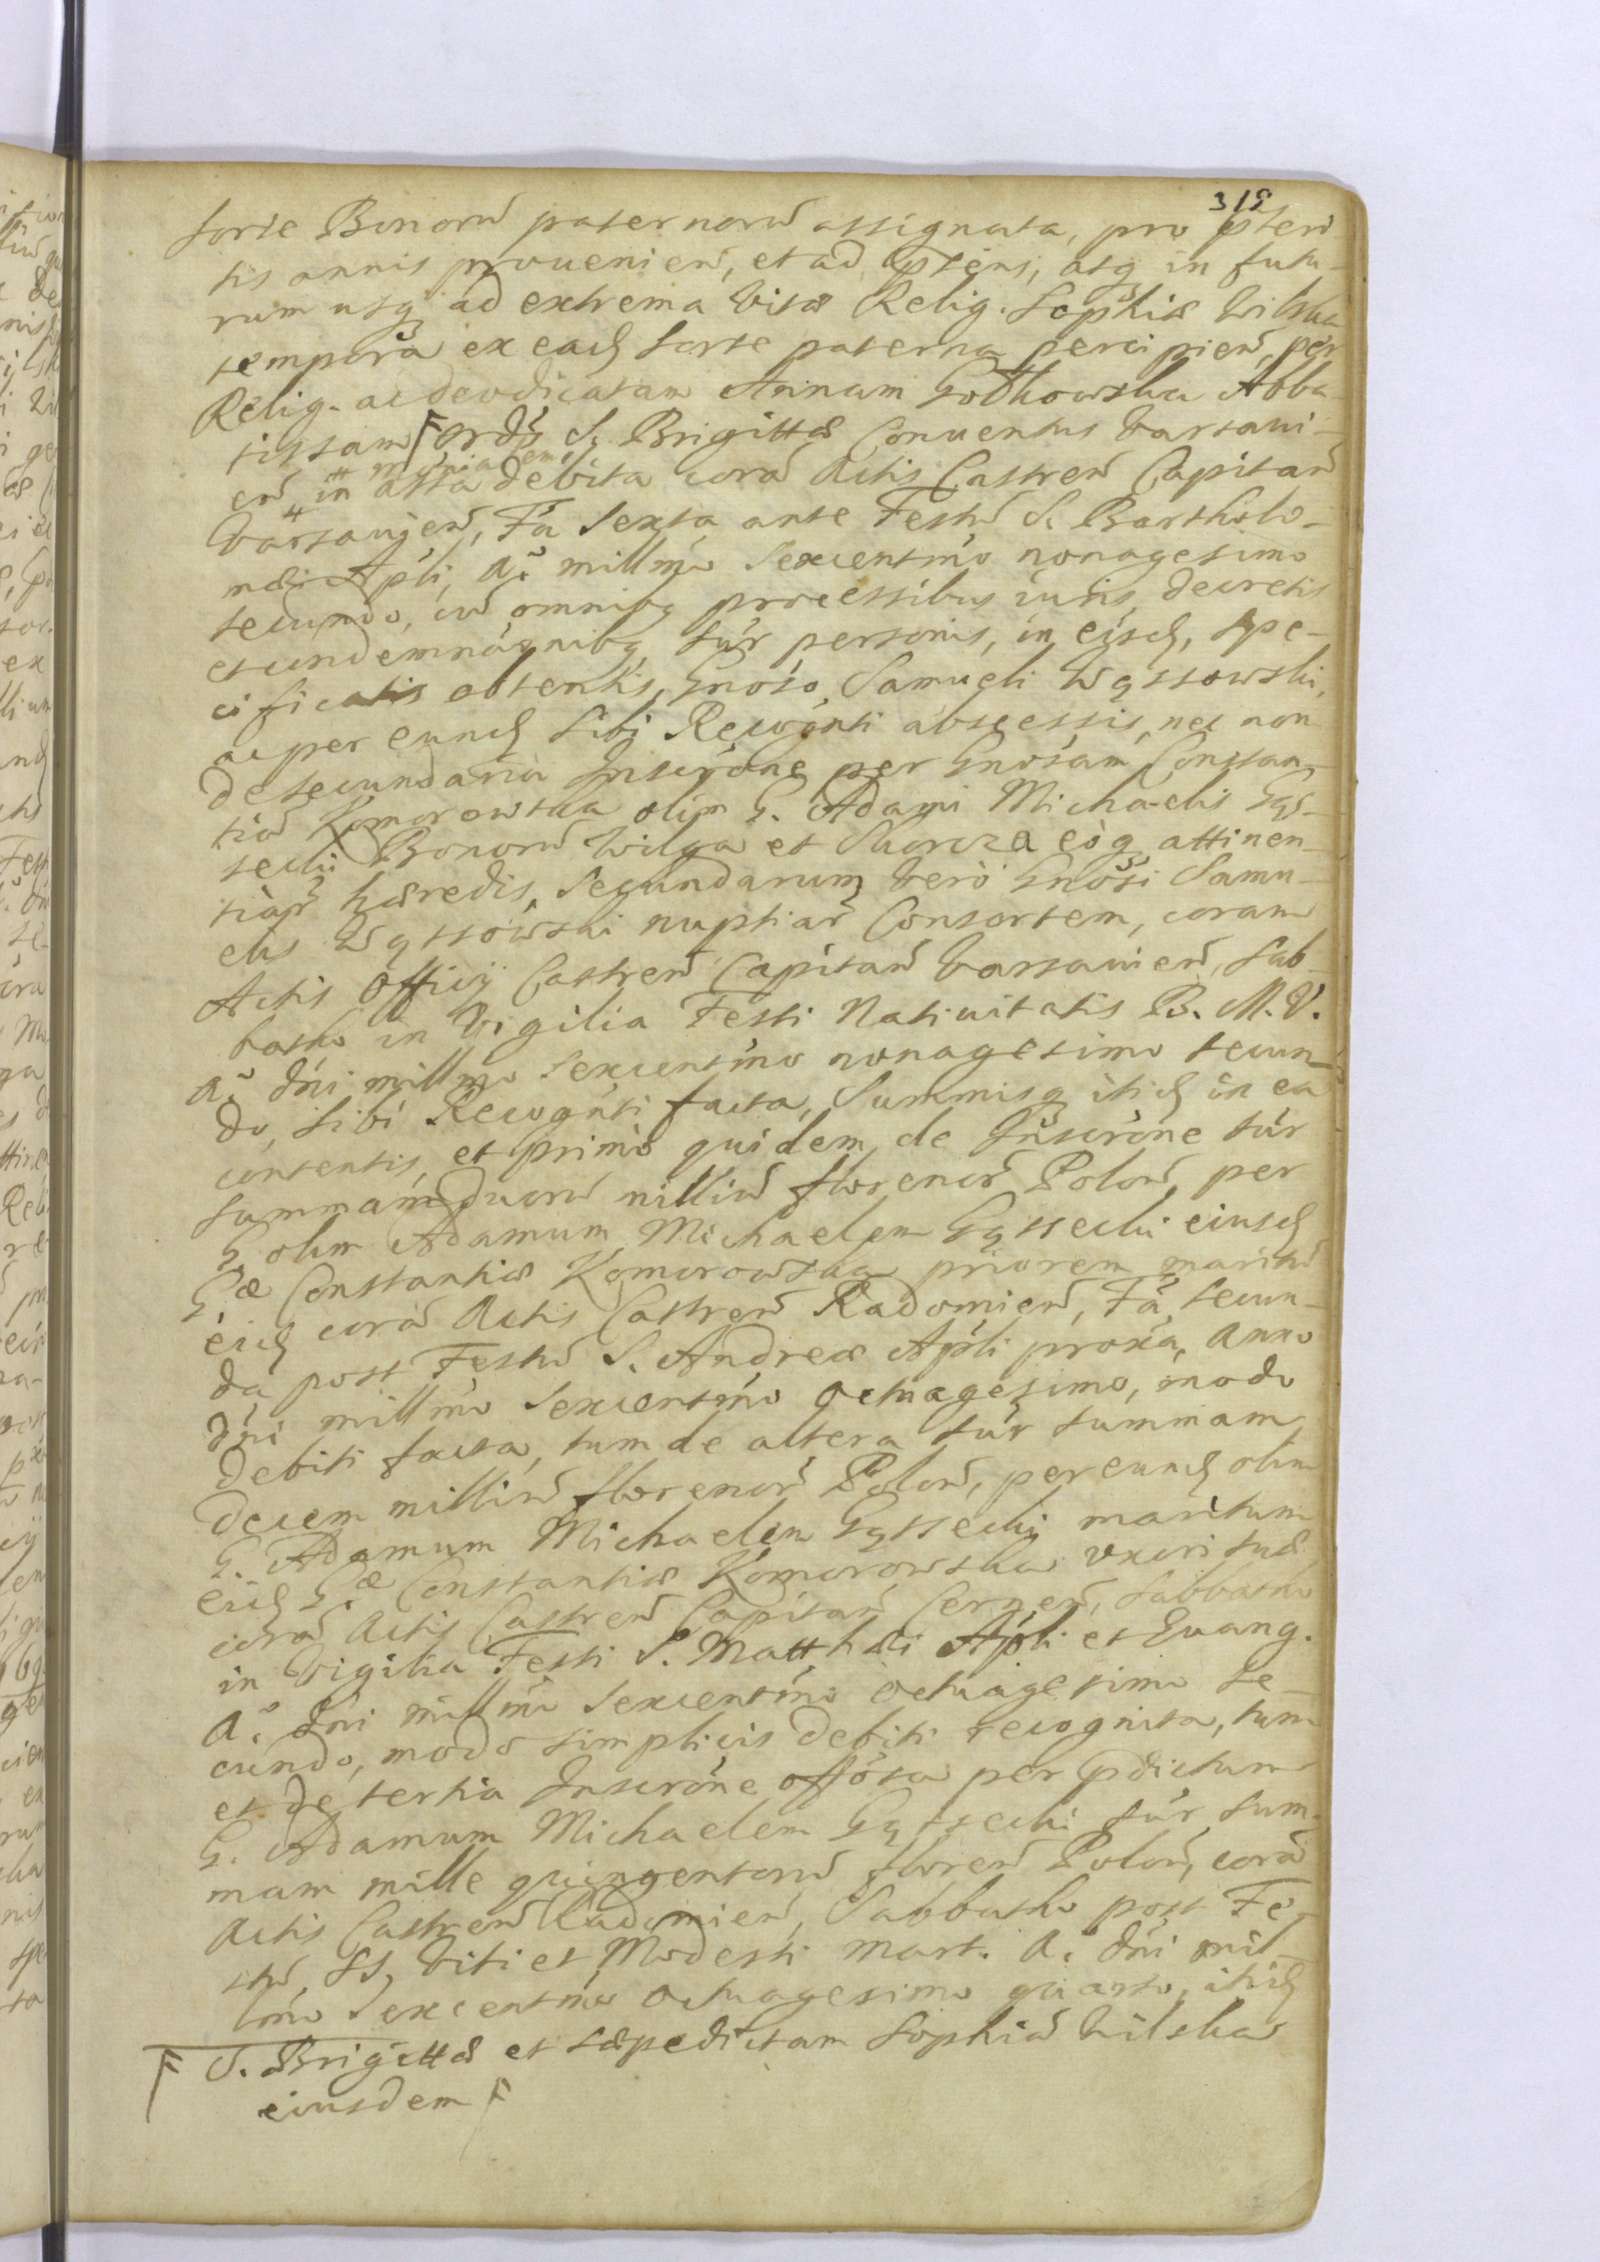 319
sorte Bonorũ paternorũ assignata, pro pteri-
tis annis prouenieñ, et ad ptens, atq in futu-
rum usq ad extrema vitæ Relig. Sophiæ Wilska
tempora ex eadȝ sorte paterna percipieñ, per
Relig. ac deodicatam Annam Godkowska Abba-
tissam F Ordis S. Brigittæ Conuentus Varsaui-
eñ in debita corã Actis Castreñ Capitañ
Varsauieñ, Fa Sexta ante Festũ S. Bartholo-
mæi Apli, A.o millmo Sexcentmo nonagesimo
secundo, cũ omnibq processibus iuris, decretis
et condemnãonibq sur personis, in eisdȝ, spe-
cificatis obtentis, Gnoso Samueli Wąssowski,
ac per eundȝ sibi Recognti abscessis, nec non
de secundaria Inscrone per Gnosam Constan-
tiã Komorowska olim G. Adami Michaelis Gąs-
secki Bonorũ Wilga et Skurcza eoq attinen-
tiar hæredis, secundarum vero Gnosi Samu-
elis Wąssowski nuptiar Consortem, coram
Actis Officij Castreñ Capitañ Varsauieñ, Sab-
batho in Vigilia Festi Natiuitatis B. M. V.
A.o dni millmo Sexcentmo nonagesimo secun-
do, sibi Recognti facta, Summisq itidȝ in ea
contentis, et primo quidem de Inscrone sur
summam duorũ milliũ florenor Poloñ, per
G. olim Adamum Michaelem Gąssecki eiusdȝ
G.æ Constantiæ Komorowska priorem maritũ
eidȝ corã Actis Castreñ Radomieñ, Fa secun-
da post Festũ S. Andreæ Apli proxa, Anno
dni millmo Sexcentmo octuagesimo, modo
debiti facta, tum de altera sur summam
decem milliũ florenor Poloñ, per eundȝ olim
G. Adamum Michaelem Gąssecki maritum
eidȝ G.æ Constantiæ Komorowska uxori suæ
corã Actis Castreñ Capitañ Cerneñ, Sabbatho
in Vigilia Festi S. Matthæi Apli et Euang.
A.o dni millmo Sexcentmo octuagesimo se-
cundo, modo simplicis debiti recognita, tum
et de tertia Inscrone per pdictum
G. Adamum Michaelem Gąssecki sur sum-
mam mille quingentorũ floreñ Poloñ, corã
Actis Castreñ Radomieñ, Sabbatho post Fe-
stũ, SS, Viti et Modesti Mart. A.o dni mil-
lmo Sexcentmo octuagesimo quarto, itidȝ
F S. Brigittæ et sæpedictam Sophiã Wilska
eiusdem F